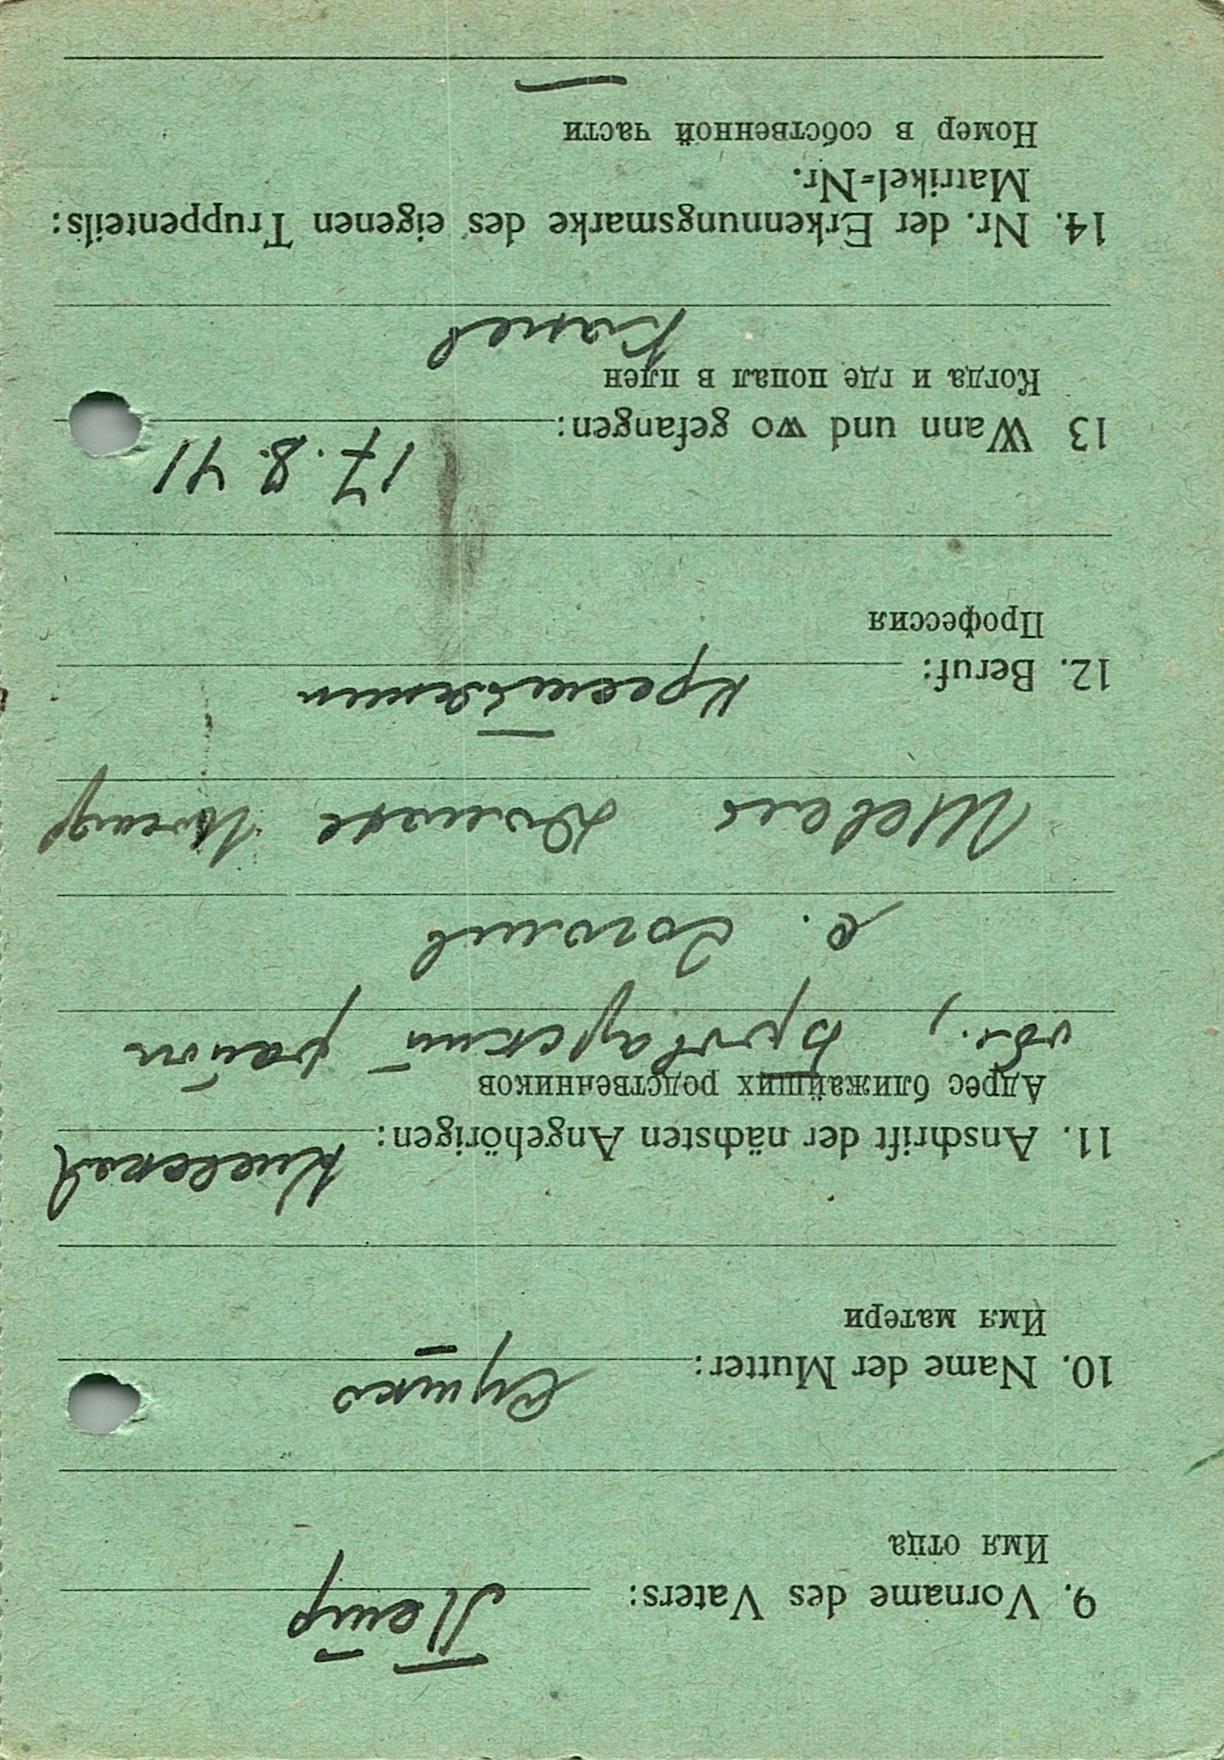 9. Vorname des Vaters: Петр
Имя отца
10. Name der Mutter: Сушко
Имя матери
11. Anschrift der nächsten Angehörigen: Киевская
Адрес ближайших родственников
обл., Броварский район
с. Гоголев
Шевель
12. Beruf: Крестьянин
Профессия
13 Wann und wo gefangen: 17.8.41
Когда и где попал в плен
Канев
14. Nr. der Erkennungsmarke des eigenen Truppenteils:
Matrikel-Nr.
Номер в собственной части
—